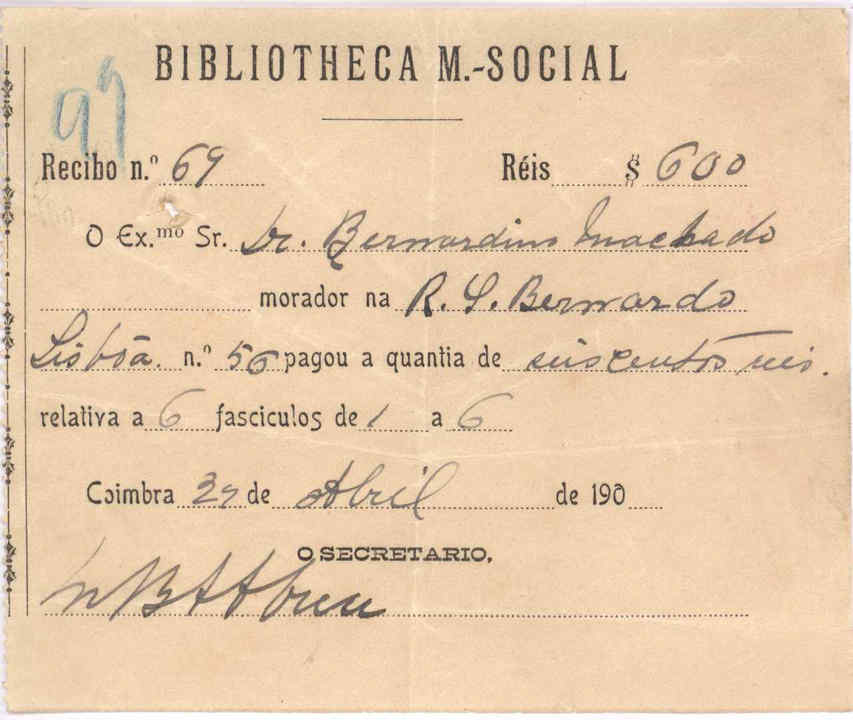 BIBLIOTHECA M.-SOCIAL
97
Recibo n.º 69 Réis $ 600
O Ex.mo Sr. Dr. Bernardino Machado
morador na R. S. Bernardo
Lisbôa. n.º 56 pagou a quantia de seiscentos reis.
relativa a 6 fasciculos de 1 a 6
Coimbra 27 de Abril de 190
O SECRETARIO,
Abreu